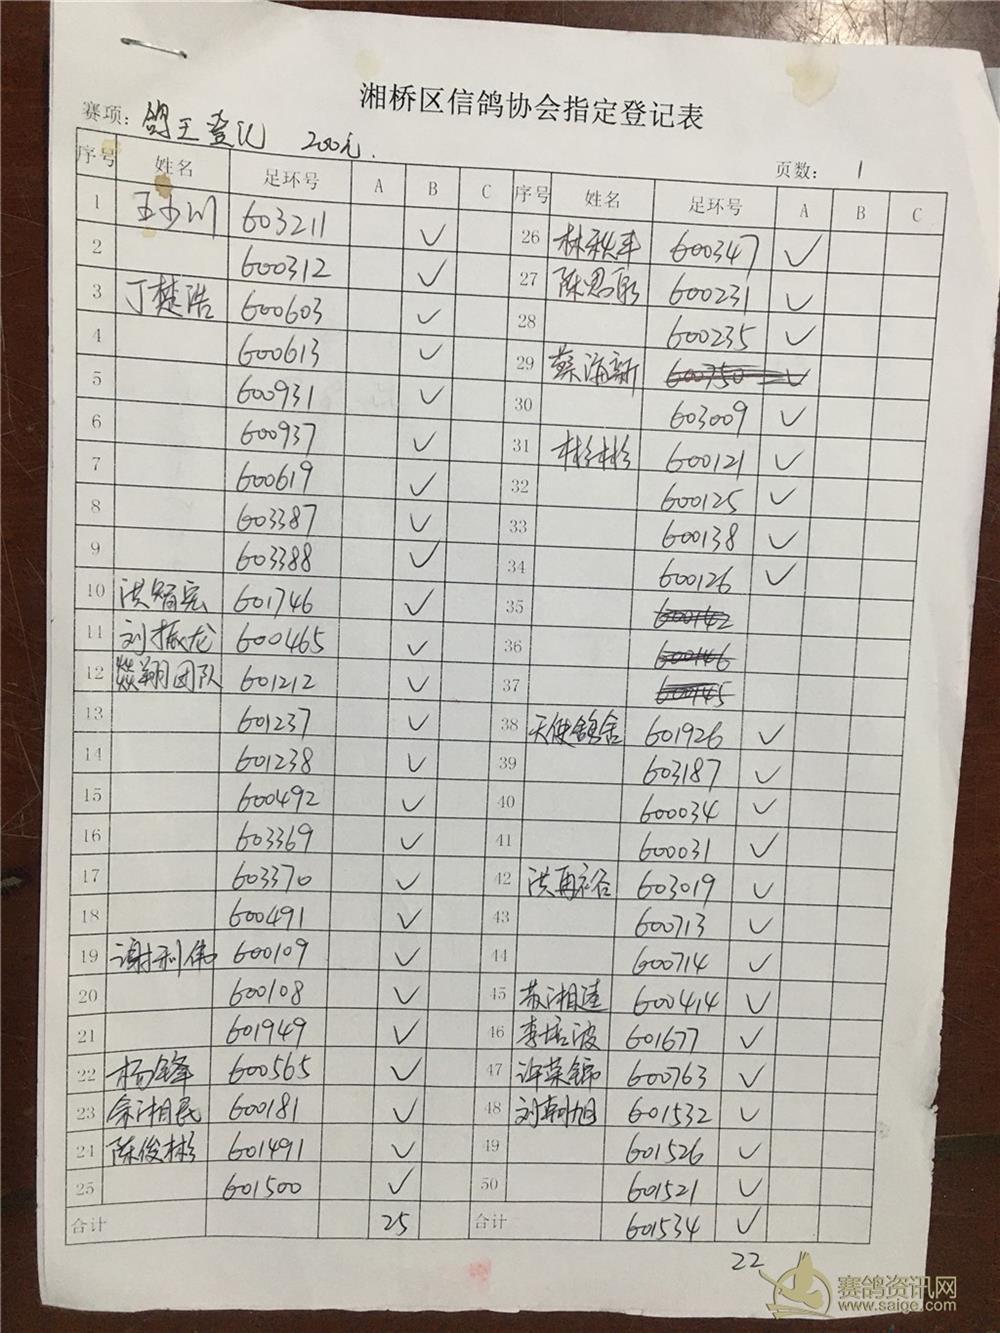 湘桥区信鸽协会指定登记表
赛项: 鸽王登记 200元. 页数: 1
序号 姓名 足环号 A B C
1 603211 ✓
2 600312 ✓
3 丁楚浩 600603 ✓
4 600613 ✓
5 600931 ✓
6 600937 ✓
7 600619 ✓
8 603387 ✓
9 603388 ✓
10 洪 601746 ✓
11 刘振龙 600465 ✓
12 燚翔团队 601212 ✓
13 601237 ✓
14 601238 ✓
15 600492 ✓
16 603369 ✓
17 603370 ✓
18 600491 ✓
19 谢利伟 600109 ✓
20 600108 ✓
21 601949 ✓
22 杨锋 600565 ✓
23 余湘民 600181 ✓
24 陈俊彬 601491 ✓
25 601500 ✓
合计 25
序号 姓名 足环号 A B C
26 林秋丰 600347 ✓
27 陈 600231 ✓
28 600235 ✓
29 蔡海新 600750 ✓
30 603009 ✓
31 彬彬 600121 ✓
32 600125 ✓
33 600138 ✓
34 600126 ✓
35 600142
36 600146
37 600145
38 天使鸽舍 601926 ✓
39 603187 ✓
40 600034 ✓
41 600031 ✓
42 洪再裕 603019 ✓
43 600713 ✓
44 600714 ✓
45 苏湘达 600414 ✓
46 李培波 601677 ✓
47 许荣锦 600763 ✓
48 刘朝旭 601532 ✓
49 601526 ✓
50 601521 ✓
合计 601534 ✓
22
赛鸽资讯网
www.saige.com